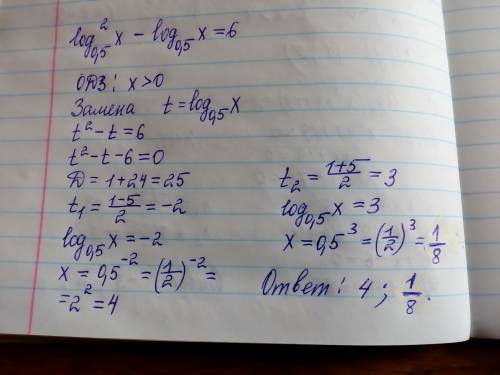 log²₀,₅ x − log₀,₅ x = 6
ОДЗ: x > 0
Замена t = log₀,₅ x
t² − t = 6
t² − t − 6 = 0
D = 1 + 24 = 25
t₁ = (1−5)/2 = −2
log₀,₅ x = −2
x = 0,5⁻² = (1/2)⁻² =
= 2² = 4
t₂ = (1+5)/2 = 3
log₀,₅ x = 3
x = 0,5³ = (1/2)³ = 1/8
Ответ: 4; 1/8.